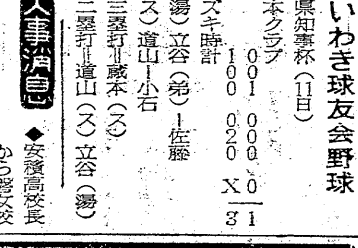 いわき球友会野球
県知事杯（11日）
本クラブ
001 000 0 1
100 020 X 3
ズキ時計
湯）立谷（弟）ー佐藤
ス）道山ー小石
三塁打＝蔵本（ス）
二塁打＝道山（ス）立谷（湯）
人事消息
◆安積高校長
から磐女校